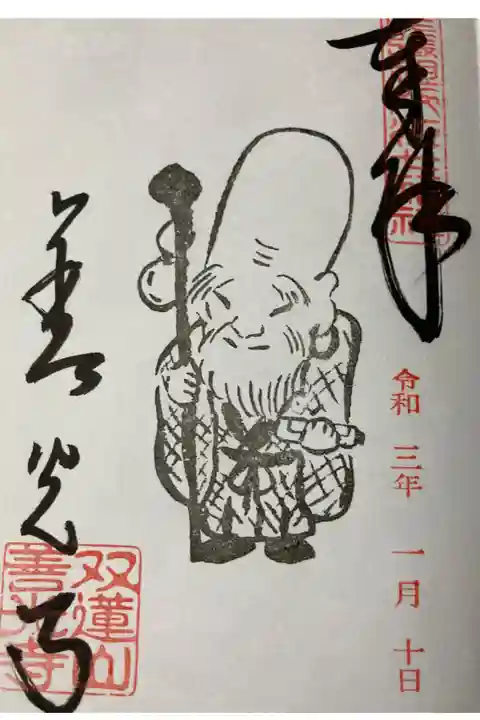 奉拝
令和 三年 一月 十日
善光寺
双蓮山
善光寺